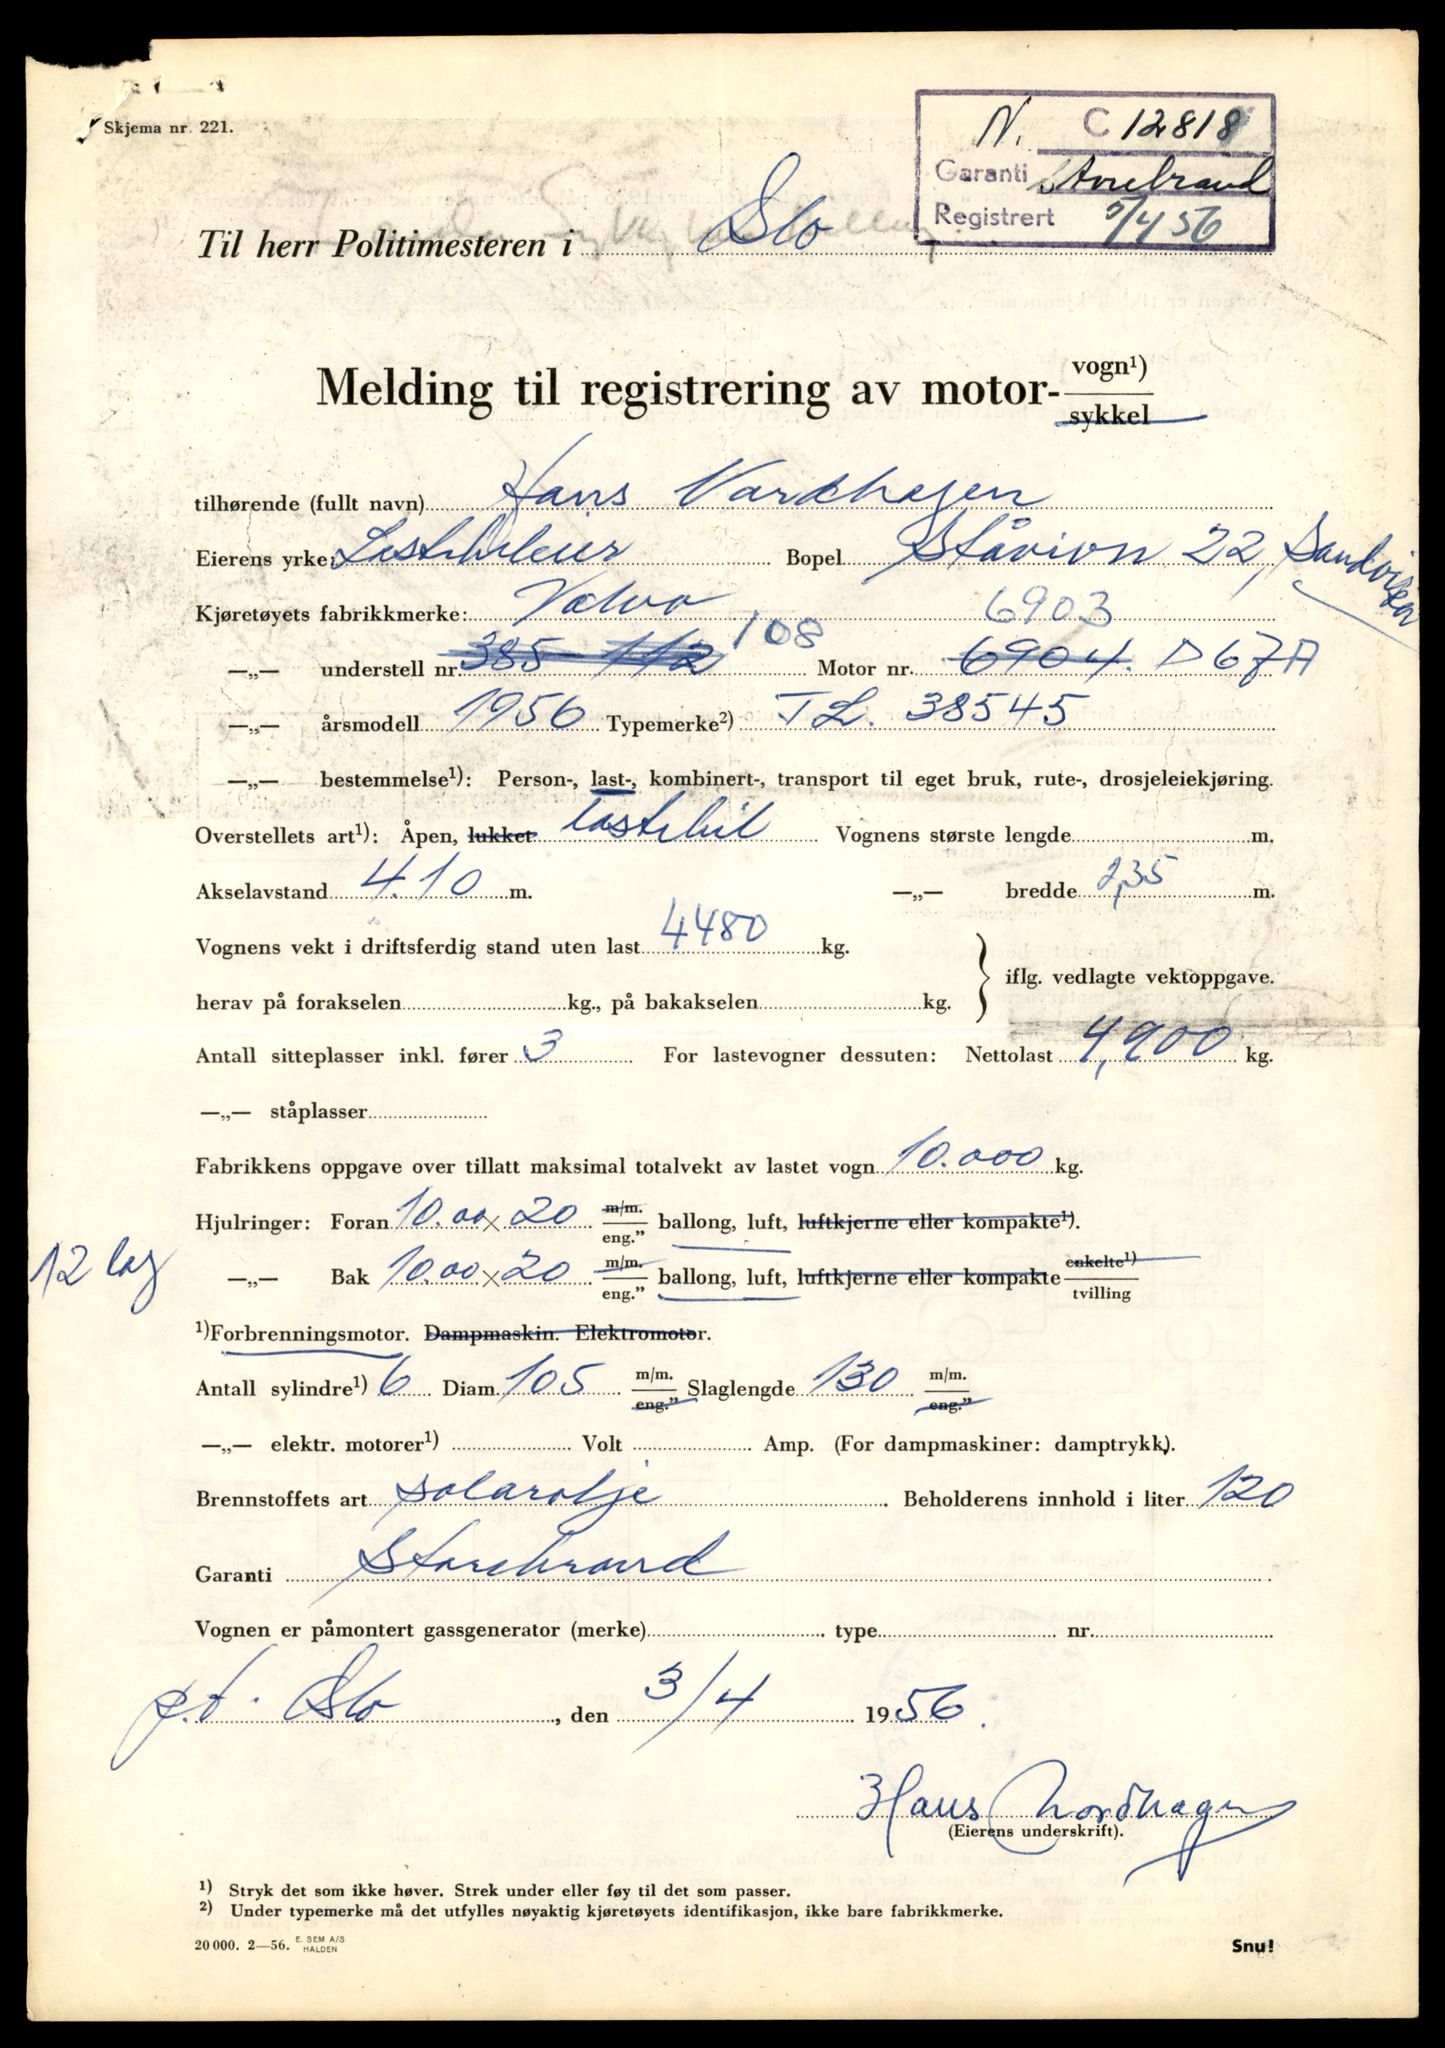 Skjema nr. 221.
N. C 12818
Garanti Storebrand
Registrert 5/4 56
Til herr Politimesteren i Oslo
Melding til registrering av motor- vogn¹)
sykkel
tilhørende (fullt navn) Hans Nordhagen
Eierens yrke: Lastebileier Bopel Ståvivn 22, Sandviken
Kjøretøyets fabrikkmerke: Volvo 6903
—„— understell nr. 385 112 108 Motor nr. 6904. D67A
—„— årsmodell 1956 Typemerke²) TL. 38545
—„— bestemmelse¹): Person-, last-, kombinert-, transport til eget bruk, rute-, drosjeleiekjøring.
Overstellets art¹): Åpen, lukket lastebil Vognens største lengde m.
Akselavstand 4.10 m. —„— bredde 2,35 m.
Vognens vekt i driftsferdig stand uten last 4480 kg.
herav på forakselen kg., på bakakselen kg. } iflg. vedlagte vektoppgave.
Antall sitteplasser inkl. fører 3 For lastevogner dessuten: Nettolast 4,900 kg.
—„— ståplasser
Fabrikkens oppgave over tillatt maksimal totalvekt av lastet vogn 10.000 kg.
Hjulringer: Foran 10.00 × 20 m/m. eng.” ballong, luft, luftkjerne eller kompakte¹).
12 lag —„— Bak 10.00 × 20 m/m. eng.” ballong, luft, luftkjerne eller kompakte enkelte¹) tvilling
¹)Forbrenningsmotor. Dampmaskin. Elektromotor.
Antall sylindre¹) 6 Diam. 105 m/m. eng.” Slaglengde 130 m/m. eng.”
—„— elektr. motorer¹) Volt Amp. (For dampmaskiner: damptrykk).
Brennstoffets art solarolje Beholderens innhold i liter 120
Garanti Storebrand
Vognen er påmontert gassgenerator (merke) type nr.
p.t. Oslo, den 3/4 1956.
Hans Nordhagen
(Eierens underskrift).
¹) Stryk det som ikke høver. Strek under eller føy til det som passer.
²) Under typemerke må det utfylles nøyaktig kjøretøyets identifikasjon, ikke bare fabrikkmerke.
20 000. 2—56. E. SEM A/S HALDEN
Snu!